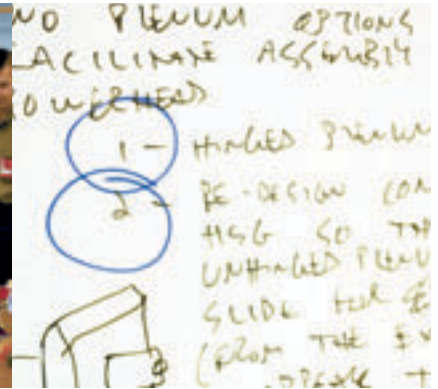 ND PLENUM OPTIONS
FACILITATE ASSEMBLY
OVERHEAD
1 - HINGED PLENUM
2 - RE-DESIGN CON
HSG SO THA
UNHINGED PLENU
SLIDE
(FROM THE EX